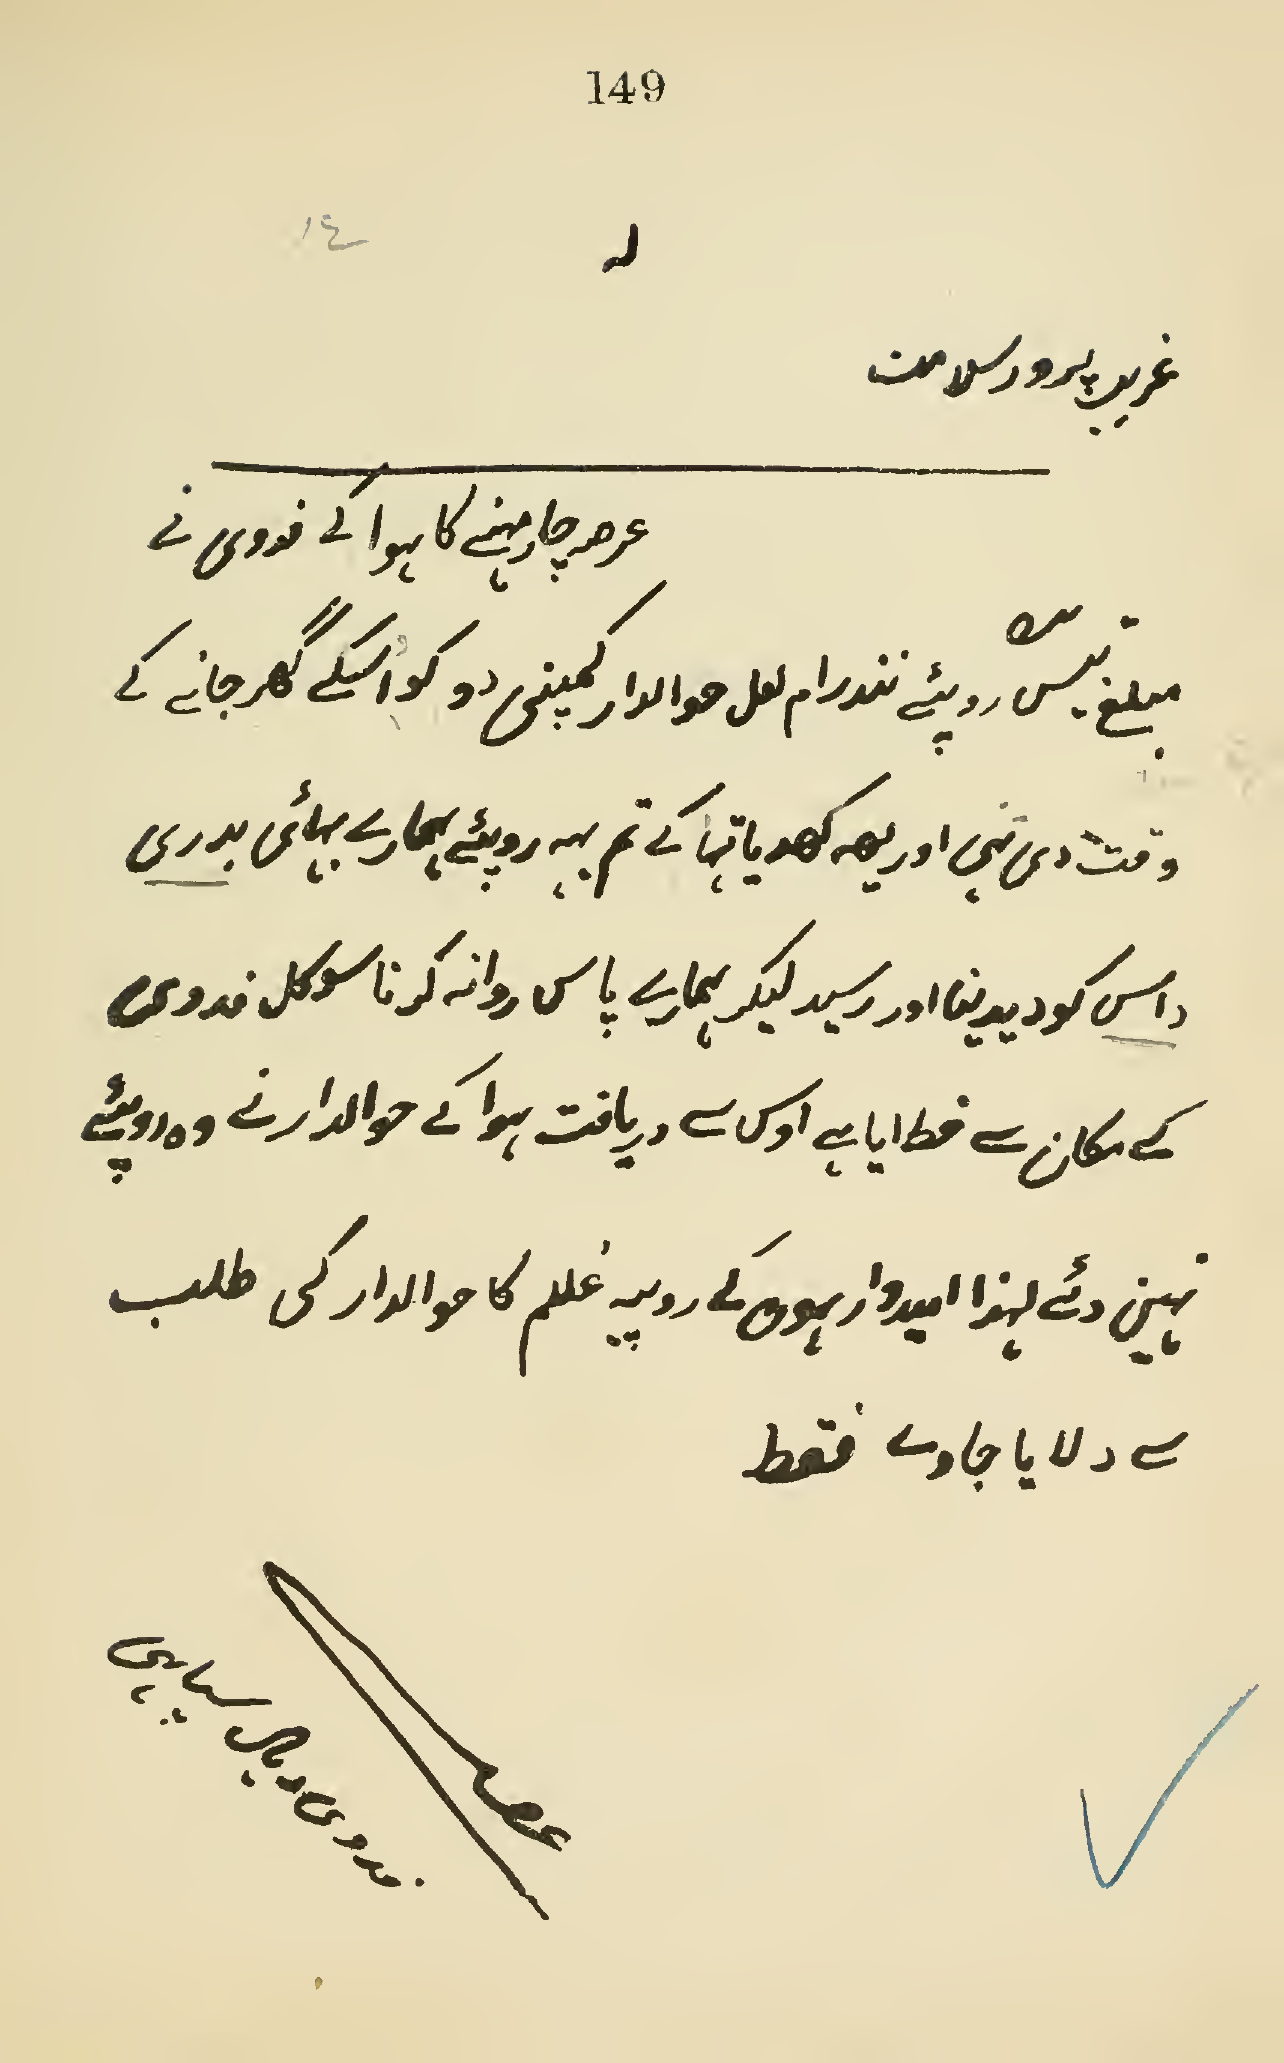 149
غریب پرور سلامت
عرصہ چار مہینے کا ہوا کے فدوی نے
مبلغ تیس روپئے نندرام لعل حوالدار کمپنی دو کو اُسکے گھر جانے کے
وقت دی تہی اور یھہ کھدیا تہا کے تم یہہ روپئے ہمارے بہائی بدری
داس کو دیدینا اور رسید لیکر ہمارے پاس روانہ کرنا سو کل فدوی
کے مکان سے خط ایا ہے اوس سے دریافت ہوا کے حوالدار نے وہ روپئے
نہینی دئے لہذا امیدوار ہوں کے روپیہ غلام کا حوالدار کی طلب
سے دلایا جاوے فقط
فدوی دیال سپاہی